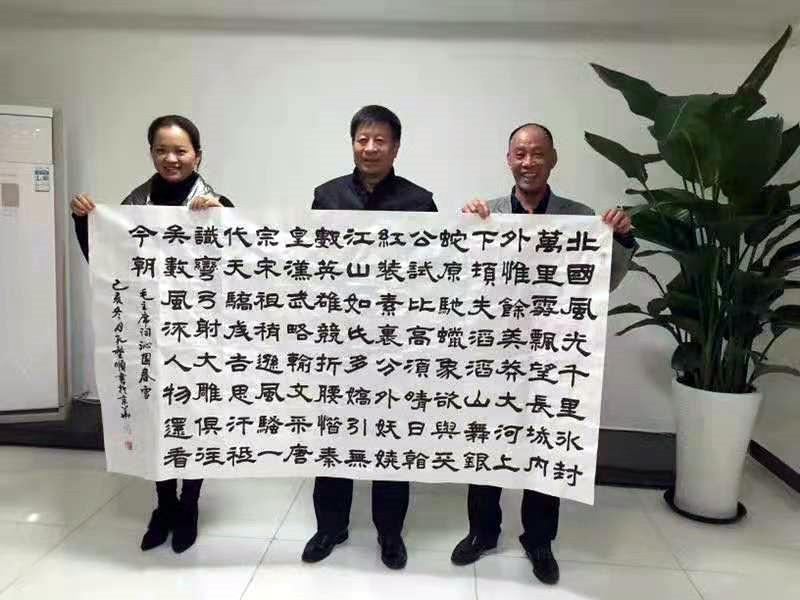 北國風光千里冰封
萬里雪飄望長城內
外惟餘莽莽大河上
下頓失滔滔山舞銀
蛇原馳蠟象欲與天
公試比高須晴日看
紅裝素裹分外妖嬈
江山如此多嬌引無
數英雄競折腰惜秦
皇漢武略輸文采唐
宗宋祖稍遜風騷一
代天驕成吉思汗祗
識彎弓射大雕俱往
矣數風流人物還看
今朝
毛主席詞沁園春雪
己亥冬月孔順書於京華